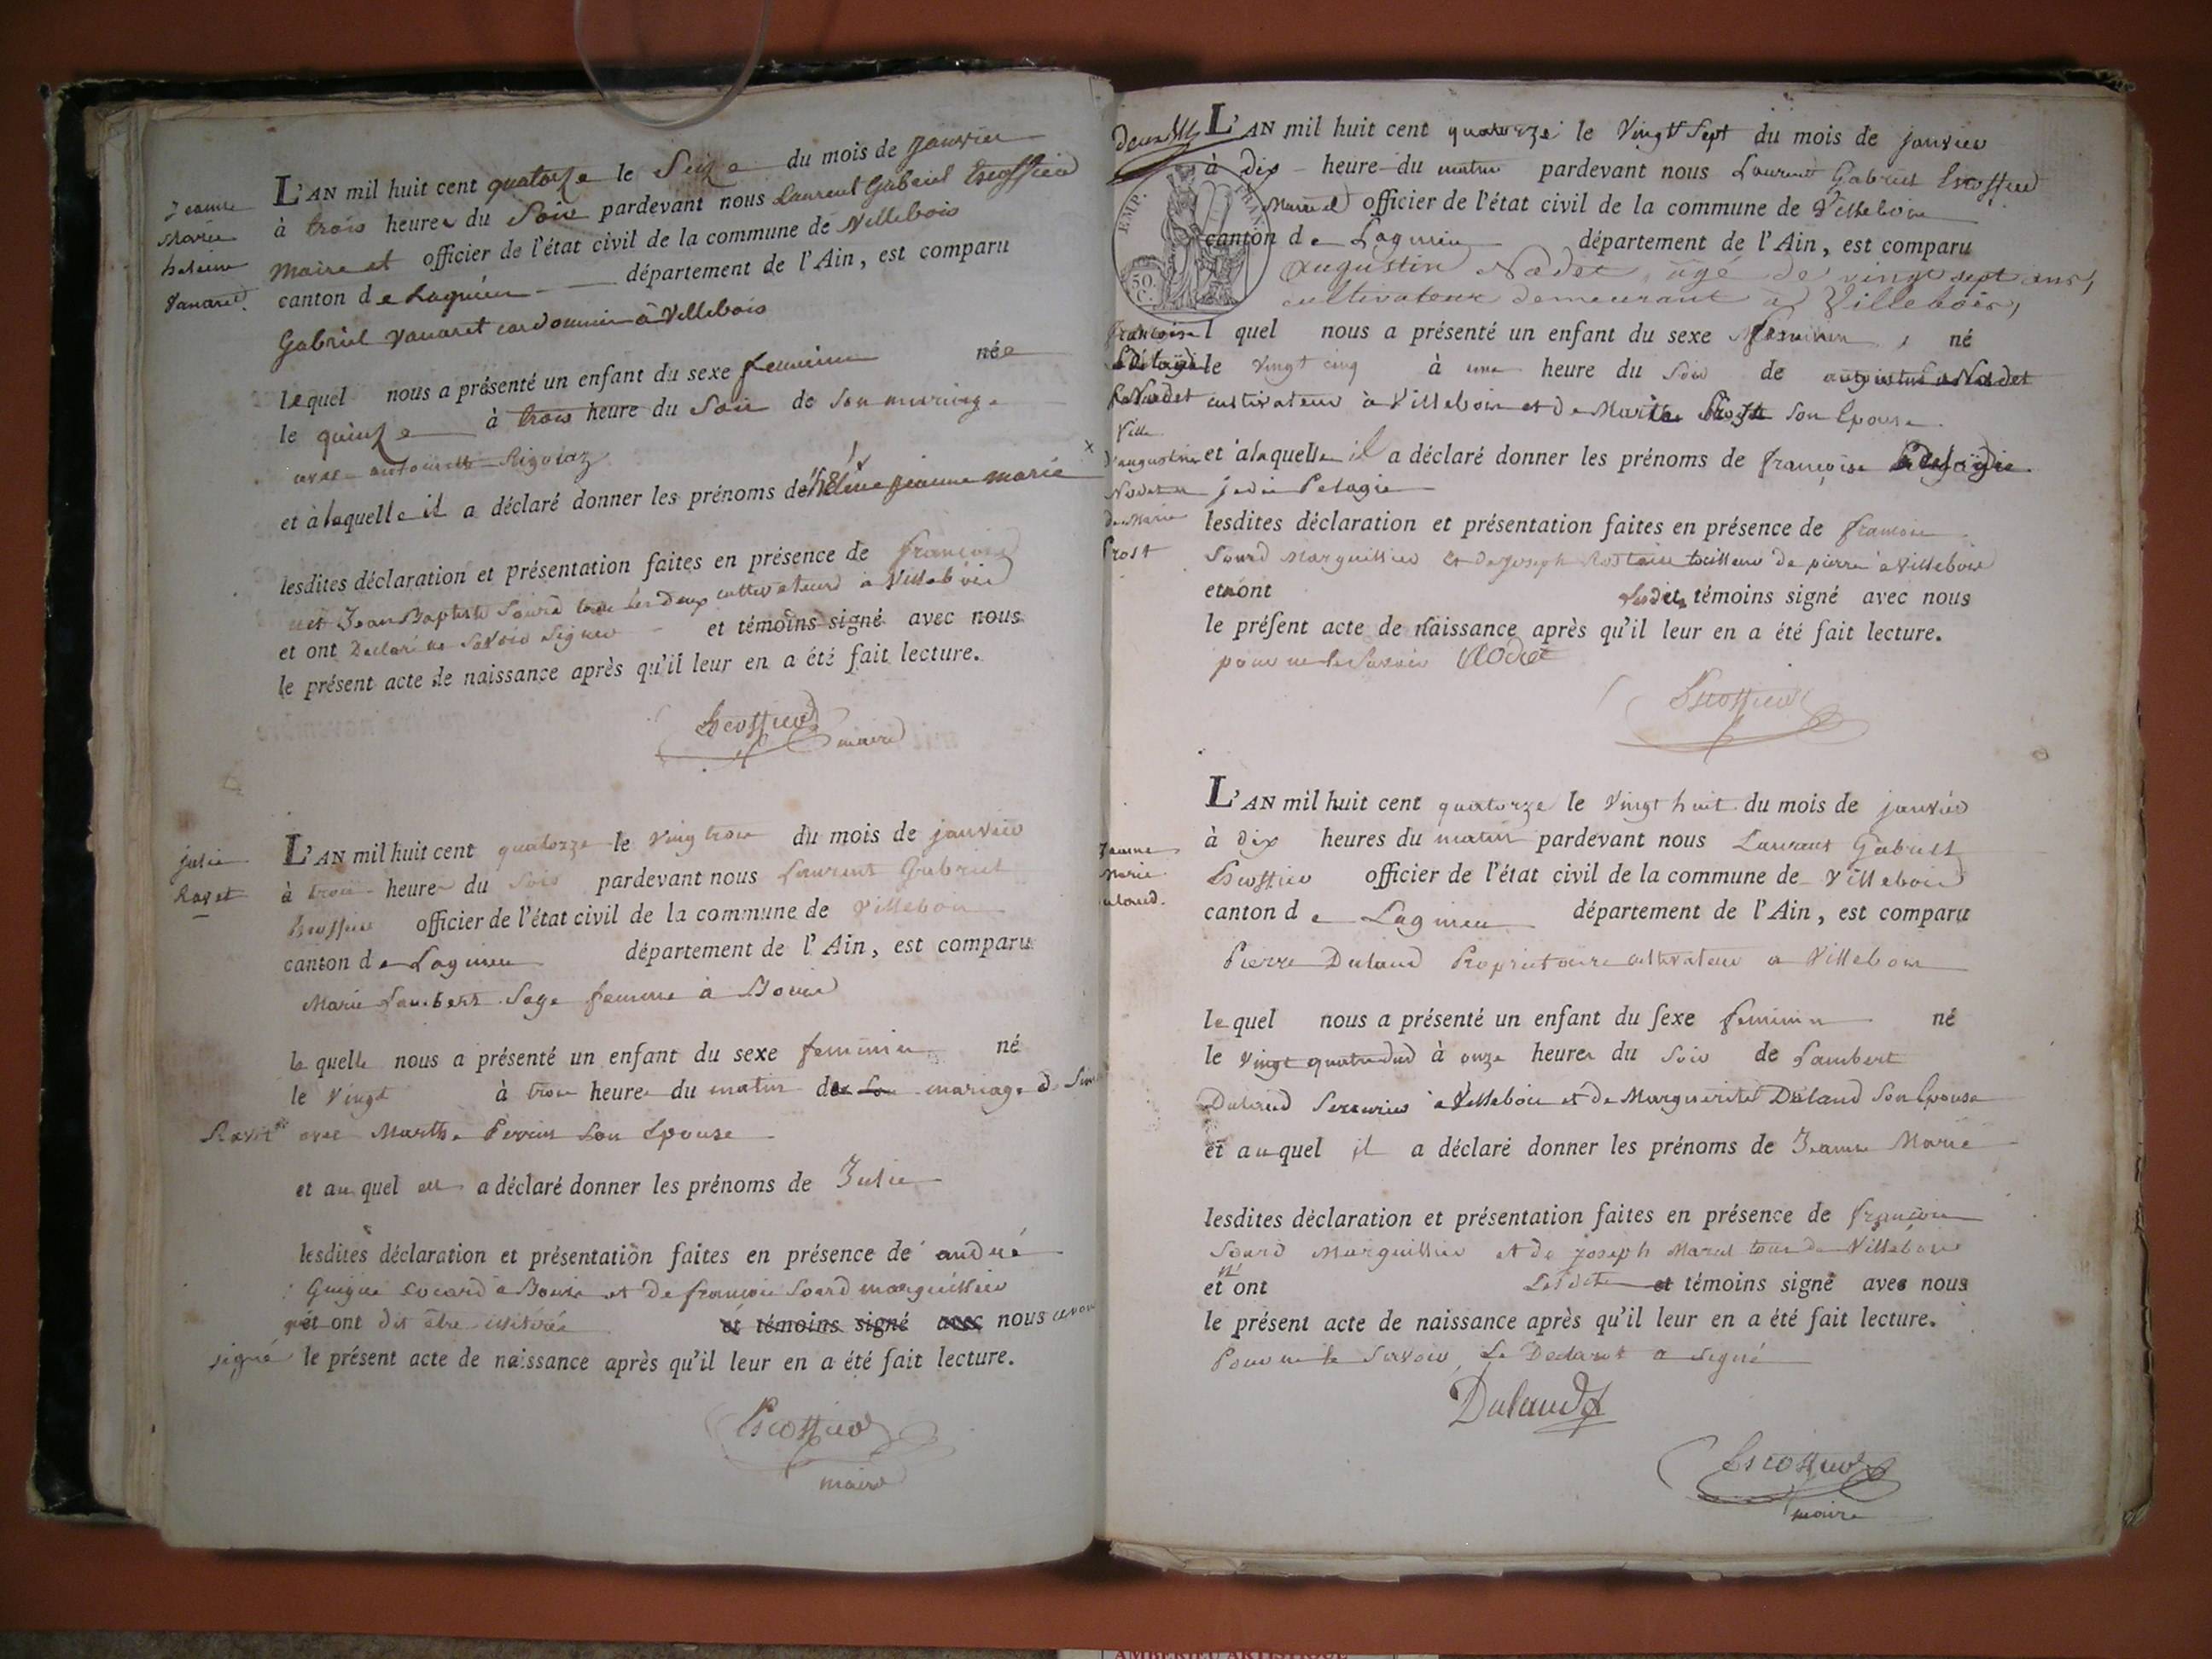 Jeanne
Marie
helaine
Vanaret.
L'AN mil huit cent quatorze le Seize du mois de janvier
à trois heures du Soir pardevant nous Laurent Gabriel Escoffier
Maire et officier de l'état civil de la commune de Villebois
canton de Lagnieu département de l'Ain, est comparu
Gabriel Vanaret cordonnier à Villebois
lequel nous a présenté un enfant du sexe feminin née
le quinze à trois heure du Soir de son mariage
avec antoinette Rigolaz
et à laquelle il a déclaré donner les prénoms de hélène jeanne marie
lesdites déclaration et présentation faites en présence de françois
et Jean Baptiste Sourd tous les deux cultivateurs a Villebois
et ont Declaré ne Savoir Signer et témoins signé avec nous
le présent acte de naissance après qu'il leur en a été fait lecture.
Escoffier
maire
julie
Ravet
L'AN mil huit cent quatorze le Vingtrois du mois de janvier
à trois heures du Soir pardevant nous Laurent Gabriel
Escoffier officier de l'état civil de la commune de Villebois
canton de Lagnieu département de l'Ain, est comparu
Marie Lambert Sage femme à
laquelle nous a présenté un enfant du sexe feminin né
le Vingt à trois heures du matin de mariage de
Ravet avec Marthe Perrin Son Epouse
et au quel elle a déclaré donner les prénoms de Julie
lesdites déclaration et présentation faites en présence de andré
Guigue et de françois Sourd marguillier
qui et ont dit être illitérés et témoins signé avec nous avons
signé le présent acte de naissance après qu'il leur en a été fait lecture.
Escoffier
maire
L'AN mil huit cent quatorze le Vingt Sept du mois de janvier
à dix heure du matin pardevant nous Laurent Gabriel Escoffier
Maire et officier de l'état civil de la commune de Villebois
canton de Lagnieu département de l'Ain, est comparu
EMP. FRAN
50. C.
Augustin Nodet, âgé de vingt sept ans,
cultivateur demeurant à Villebois,
françoise
Nodet
fille
d'augustin
Nodet et
de Marie
Prost
l quel nous a présenté un enfant du sexe feminin, né
le vingt cinq à une heure du Soir de augustin Nodet
cultivateur à Villebois et de Marie Prost Son Epouse
et à laquelle il a déclaré donner les prénoms de françoise
Pelagie
lesdites déclaration et présentation faites en présence de françois
Sourd Marguillier et de Joseph Rostain tailleur de pierre à Villebois
et n'ont lesdits témoins signé avec nous
le présent acte de naissance après qu'il leur en a été fait lecture.
pour ne le Savoir Nodet
Escoffier
Jeanne
Marie
L'AN mil huit cent quatorze le Vingt huit du mois de janvier
à dix heures du matin pardevant nous Laurent Gabriel
Escoffier officier de l'état civil de la commune de Villebois
canton de Lagnieu département de l'Ain, est comparu
Pierre Dulaud Proprietaire cultivateur a Villebois
lequel nous a présenté un enfant du sexe feminin né
le Vingt quatre dud à onze heures du Soir de Lambert
Dulaud Serrurier à Villebois et de Marguerite Dulaud Son Epouse
et auquel il a déclaré donner les prénoms de Jeanne Marie
lesdites déclaration et présentation faites en présence de françois
Sourd Marguillier et de joseph Maral tous de Villebois
et n'ont Lesdits et témoins signé avec nous
le présent acte de naissance après qu'il leur en a été fait lecture.
Pour ne le Savoir, Le Declarant a Signé
Dulaud
Escoffier
maire